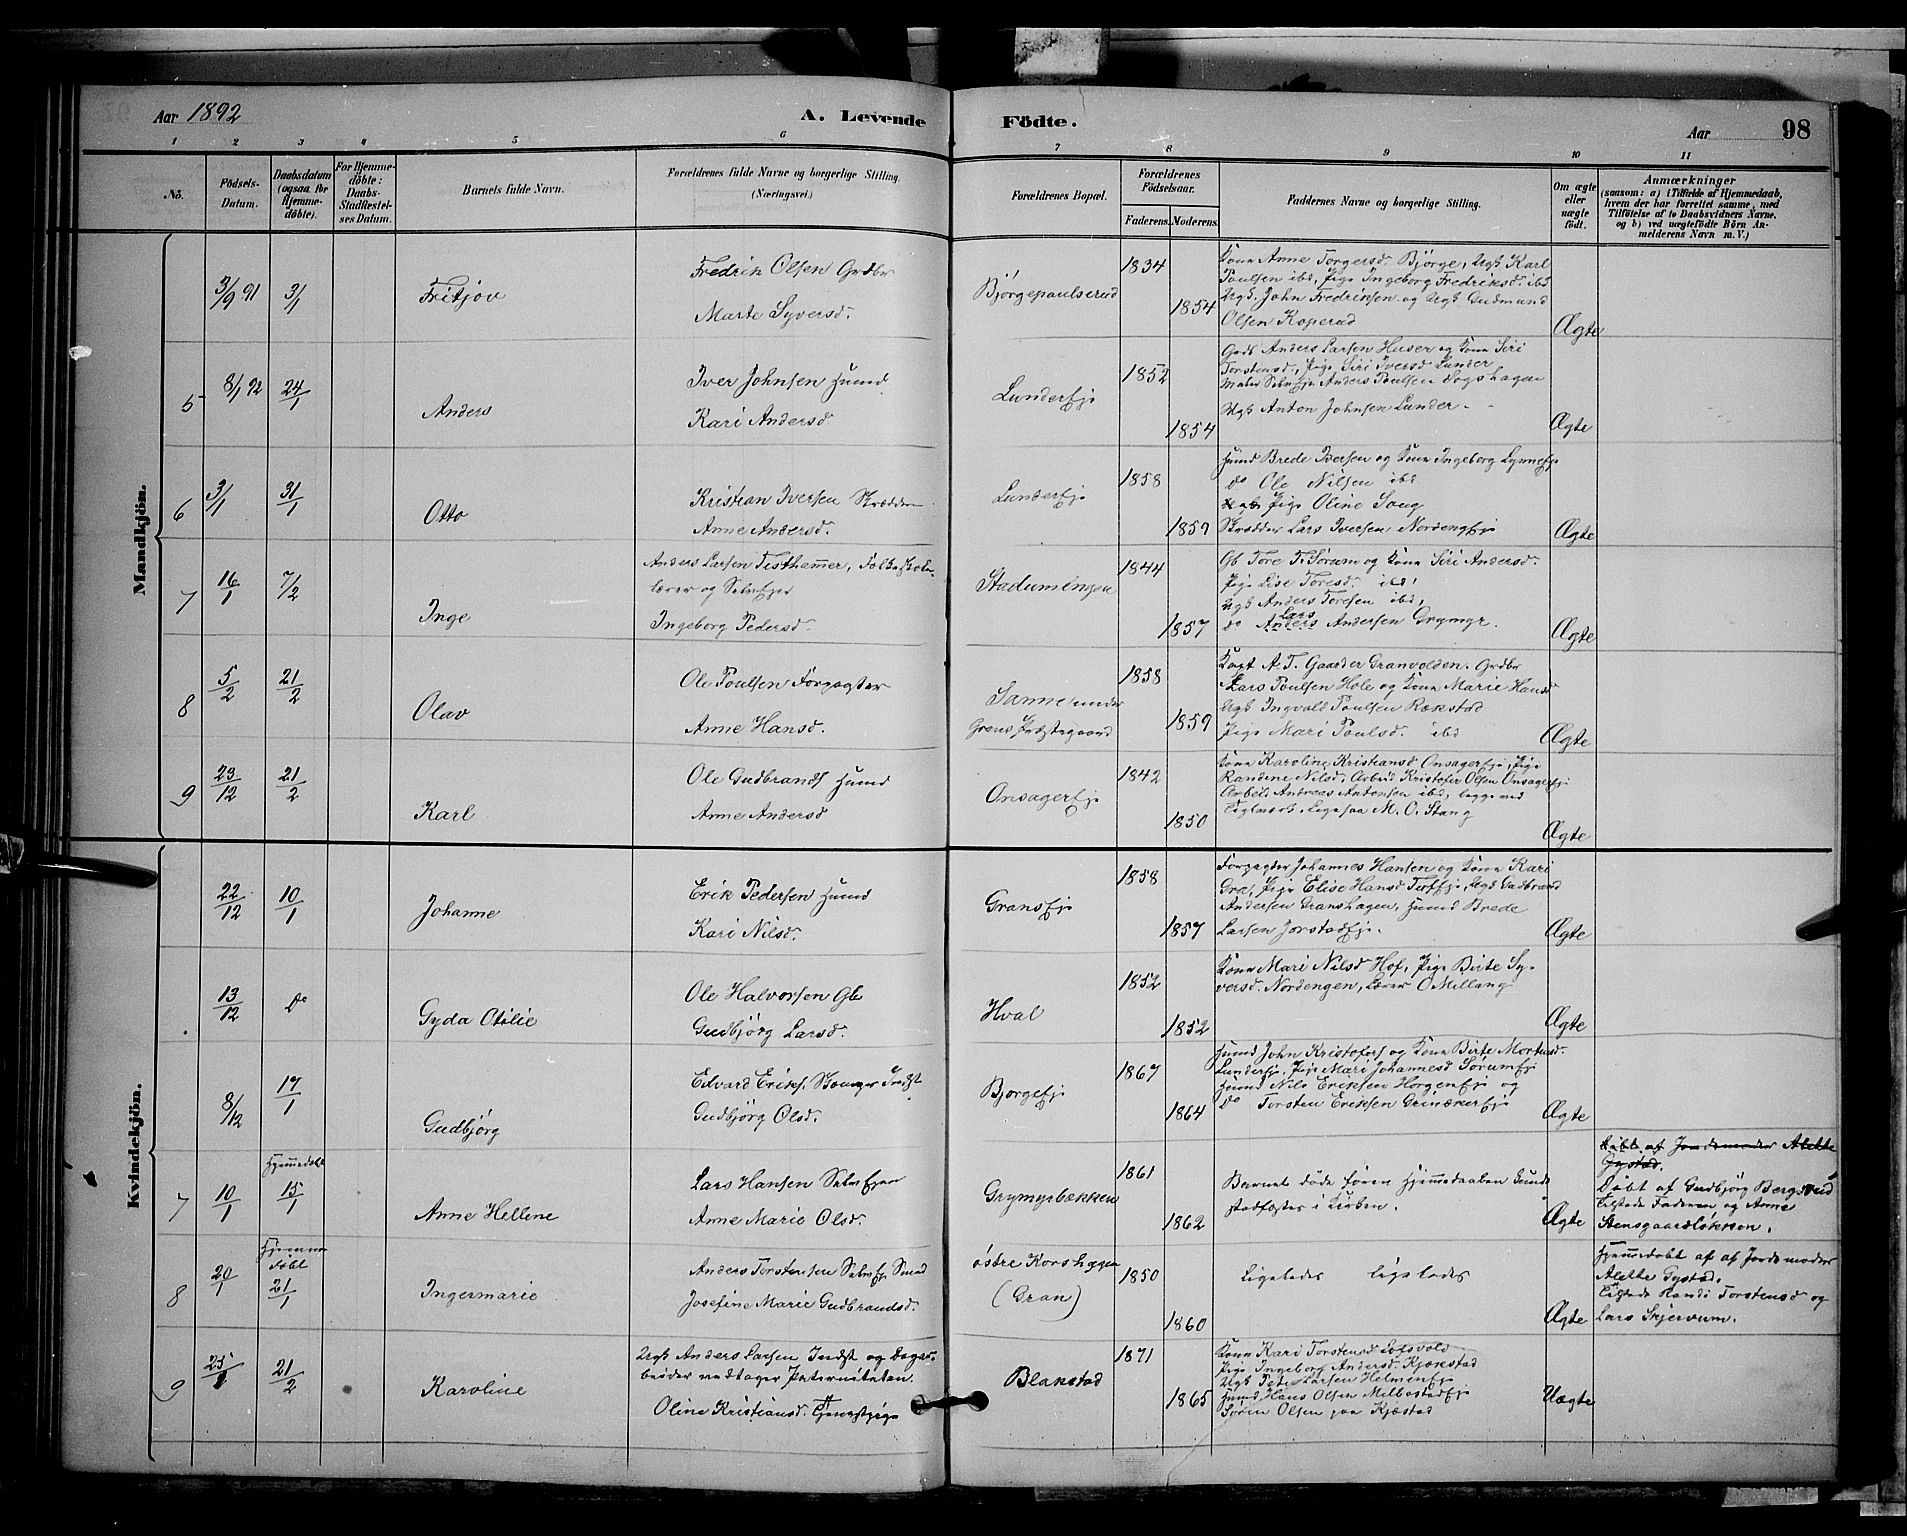 Aar 1892
A. Levende
Födte.
Aar
98
1 2 3 4 5 6 7 8 9 10 11
No.
Födsels-
Datum.
Daabsdatum
(ogsaa for
Hjemme-
döbte).
For Hjemme-
döbte:
Daabs-
Stadfæstel-
ses Datum.
Barnets fulde Navn.
Forældrenes fulde Navne og borgerlige Stilling.
(Næringsvei.)
Forældrenes Bopæl.
Forældrenes
Födselsaar.
Faderens. Moderens.
Faddernes Navne og borgerlige Stilling.
Om ægte
eller
uægte
födt.
Anmærkninger
(saasom: a) i Tilfælde af Hjemmedaab,
hvem der har forrettet samme, med
Tilföielse af to Daabsvidners Navne.
og b) ved uægtefödte Börn An-
melderens Navn m. V.)
Mandkjön.
3/9 91 3/1
Fritjov
Fredrik Olsen Grdbr
Marte Syversd.
Bjørgepaulserud
1834
1854
Kone Anne Torgersd Bjørge, Ugk Karl
Poulsen ibd, Pige Ingeborg Fredriksd. ibd
Ugk. John Fredriksen og Ugk Gudmund
Olsen Koperud
Ægte
5 8/1 92 24/1
Anders
Iver Johnsen Husmd
Kari Andersd.
Lunderejr
1852
1854
Grdb Anders Larsen Huser og Kone Siri
Torstensd, Pige Siri Iversd Lunder
Maler Selvejr Anders Poulsen Sogshagen
Ugk Anton Johnsen Lunder.
Ægte
6 3/1 31/1
Otto
Kristian Iversen Skrædder
Anne Andersd.
Lunderejr
1858
1859
Husmd Brede Iversen og Kone Ingeborg Lynneejr
do Ole Nilsen ibd
Pige Oline Sang
Skrædder Lars Iversen Nordengejr
Ægte
7 16/1 7/2
Inge
Anders Larsen Testhammer, Folkeskole-
lærer og Selvejer
Ingeborg Pedersd.
Stadumengen
1844
1857
Gb Tore T. Sorum og Kone Siri Andersd.
Pige Lise Toresd. ibd,
Ugk Anders Toresen ibd,
Lars
do Anders Andersen Grymyr.
Ægte
8 5/2 21/2
Olav
Ole Poulsen Forpagter
Anne Hansd.
Sanne under
Grans Præstegaard
1858
1859
Kapt A. T. Gaarder Granvolden. Grdbr
Lars Poulsen Hole og Kone Marie Hansd
Ugk Ingvald Poulsen Rækstad
Pige Mari Poulsd. ibd
Ægte
9 23/12 21/2
Karl
Ole Gudbrands Husmd
Anne Andersd
Onsagerejr
1842
1850
Kone Karoline Kristiansd Onsagerejr, Pige
Randine Nilsd, Arbeid Kristofer Olsen Onsagerejr
Arbeid Andreas Antonsen ibd, begge ved
Teglverk, ligesaa M. O. Stang
Ægte
Kvindekjön.
22/12 10/1
Johanne
Erik Pedersen Husmd
Kari Nilsd.
Gransejr
1858
1857
Forpagter Johannes Hansen og Kone Kari
Gran, Pige Elise Hansd Tofteejr, Ugk Gudbrand
Andersen Granshagen, Husmd Brede
Larsen Jorstadejr.
Ægte
13/12 do
Gyda Otilie
Ole Halvorsen Gb
Gudbjörg Larsd.
Hval
1852
1852
Kone Mari Nilsd Hof, Pige Birte Sy-
versd. Nordengen, Lærer O Millang
Ægte
8/12 17/1
Gudbjörg
Edvard Eriks. Skomager Indst
Gudbjörg Olsd.
Bjorgeejr
1867
1864
Husmd John Kristofers og Kone Birte Mortensd.
Lunderejr, Pige Mari Johannesd Sorumejr
Husmd Nils Eriksen Horgenejr og
do Torsten Eriksen Grinakerejr
Ægte
7 10/1 Hjemmedobt 15/1
Anne Hellene
Lars Hansen Selvejer
Anne Marie Olsd.
Grymyrbækken
1861
1862
Barnet døde føren Hjemmedaaben kunde
stadfæstes i Kirken.
Ægte
Døbt af Jordemoder Alette
Gystad.
Døbt af Gudbjörg Bergsrud
Tilstede Faderen og Anne
Stensgaardsløkken.
8 20/1 Hjemme
døbt
21/1
Ingermarie
Anders Torstensen Selvejr Smed
Josefine Marie Gudbrandsd.
østre Korshagen
(Gran)
1850
1860
Ligeledes ligeledes
Ægte
Hjemmedobt af af Jordemoder
Alette Gystad.
Tilstede Randi Torstensd og
Lars Skjervum.
9 25/1 21/2
Karoline
Ugk Anders Larsen Indst og Dagar-
beider vedtager Paterniteten.
Oline Kristiansd. Tjenestpige
Blakstad
1871
1865
Kone Kari Torstensd Lofsvold
Pige Ingeborg Andersd. Kjekstad
Ugk Peter Larsen Helminejr
Husmd Hans Olsen Melbostadejr
Søren Olsen paa Kjæstad
Uægte